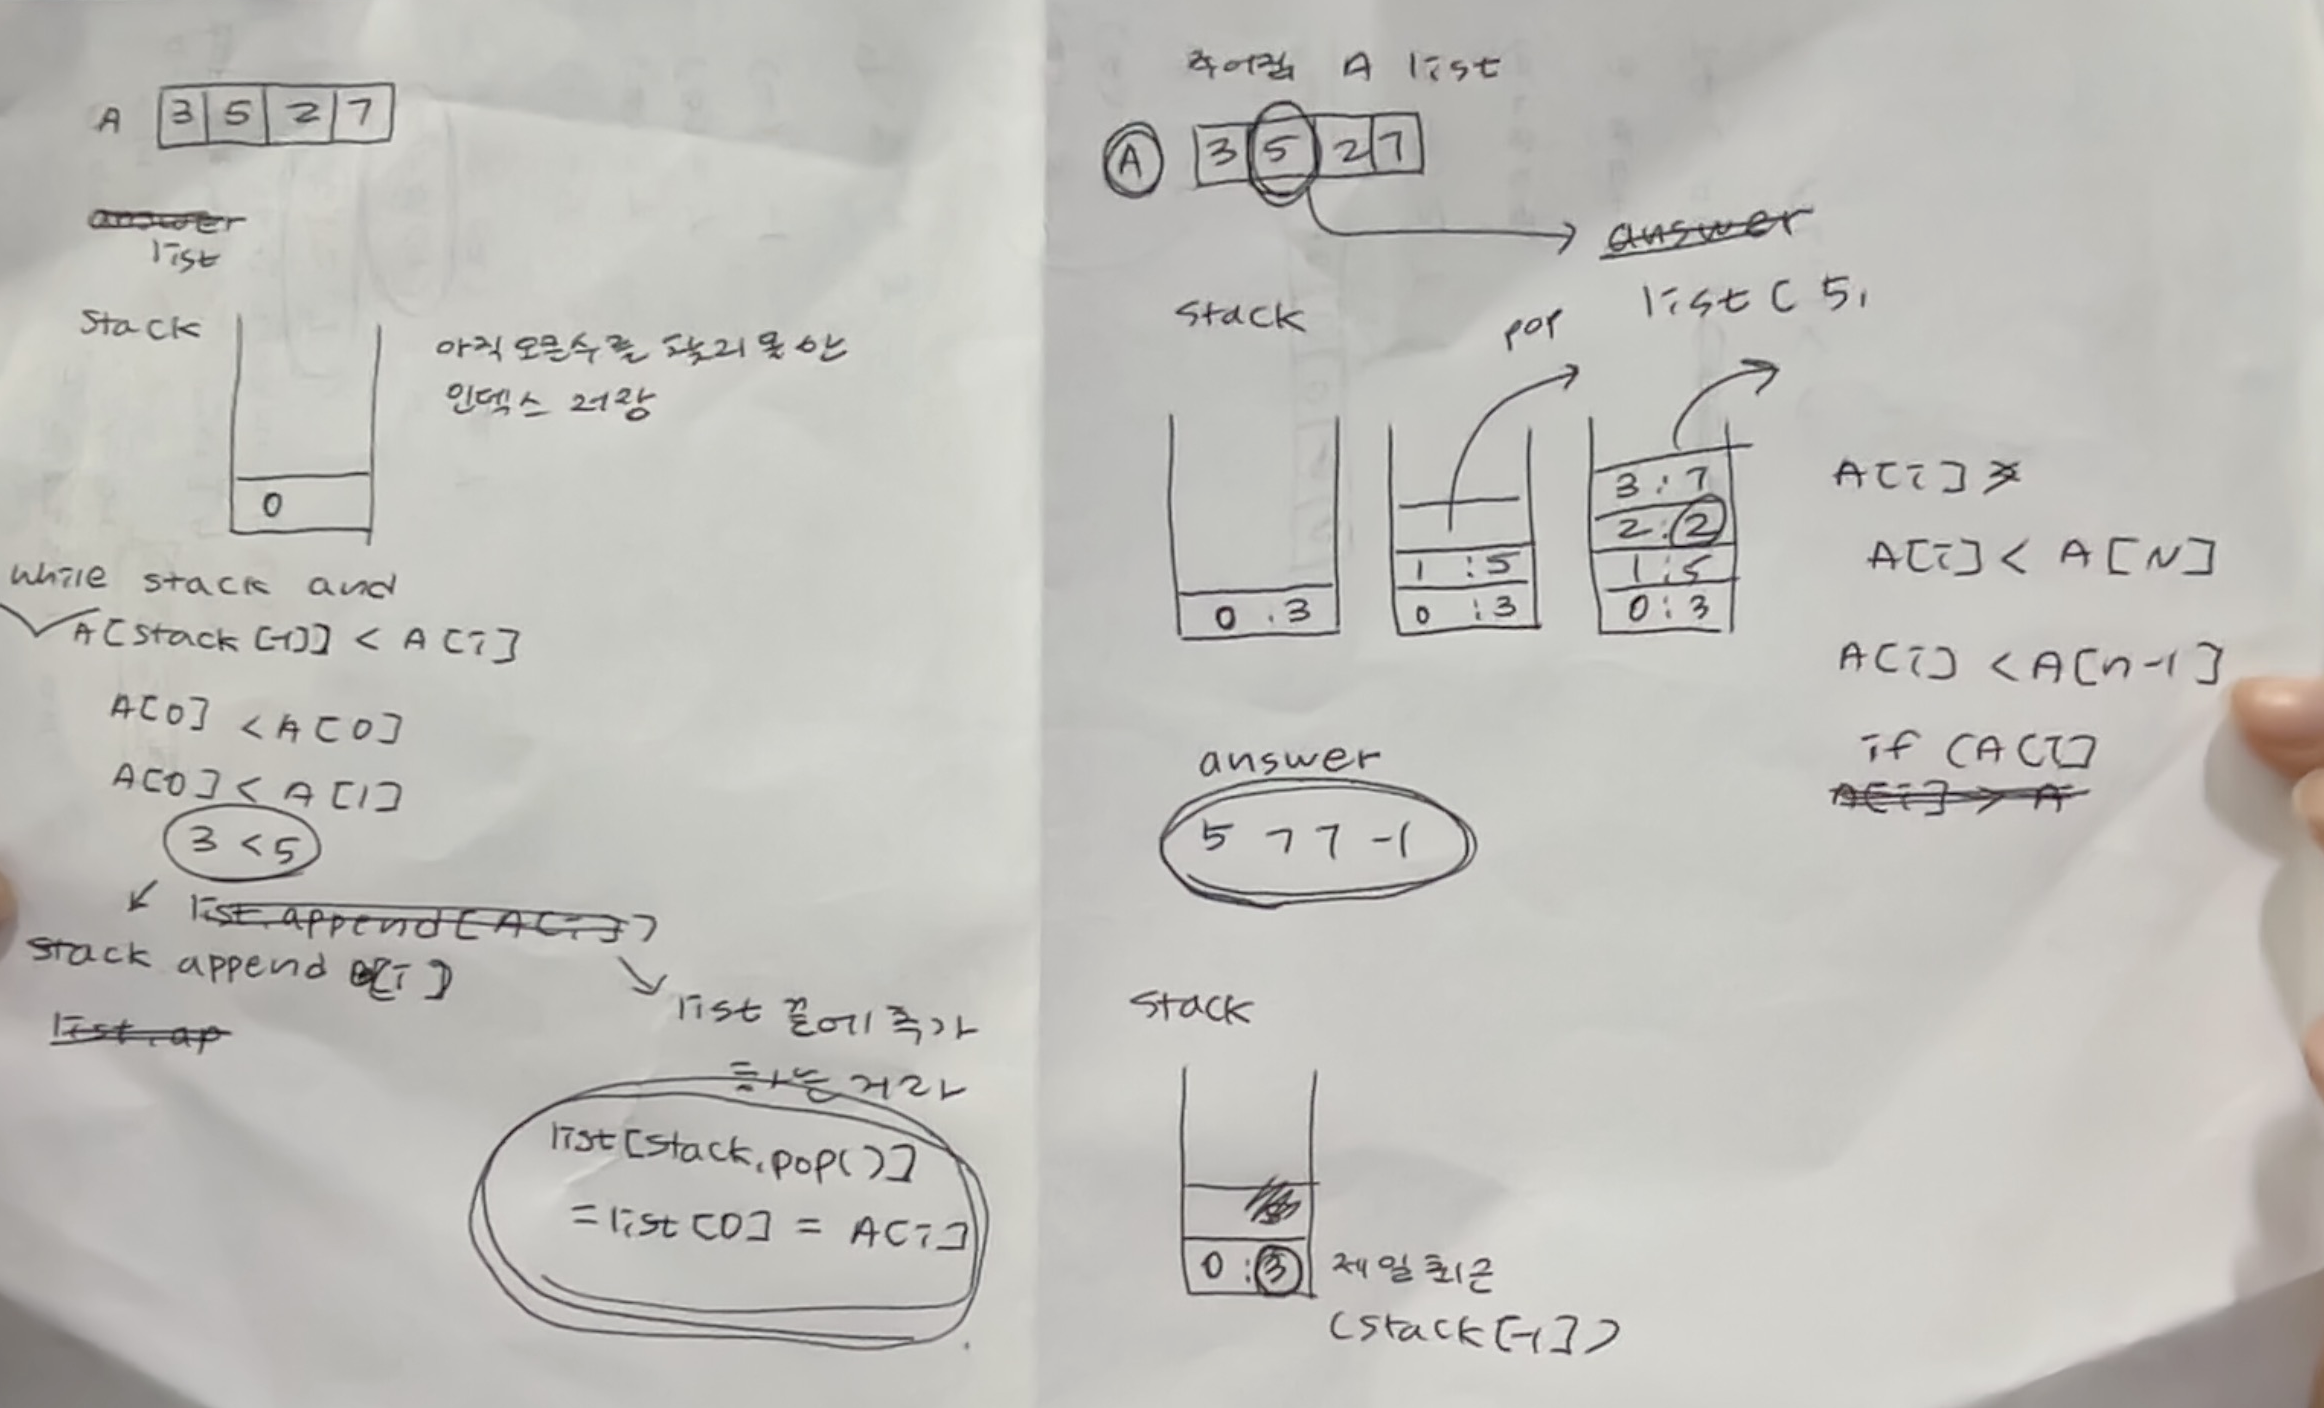 A 3 5 2 7
answer
list
stack
아직 오큰수를 찾지 못한
인덱스 저장
0
while stack and
A[stack[-1]] < A[i]
A[0] < A[0]
A[0] < A[1]
3 < 5
list.append(A[i])
stack append [i]
list.ap
list 끝에 추가
하는 거라
list[stack.pop()]
= list[0] = A[i]
주어짐 A list
A 3 5 2 7
answer
list [ 5,
stack
pop
0 : 3
1 : 5
0 : 3
3 : 7
2 : 2
1 : 5
0 : 3
A[i] >
A[i] < A[N]
A[i] < A[n-1]
if (A[i]
A[i] > A
answer
5 7 7 -1
stack
0 : 3
제일 최근
(stack[-1])